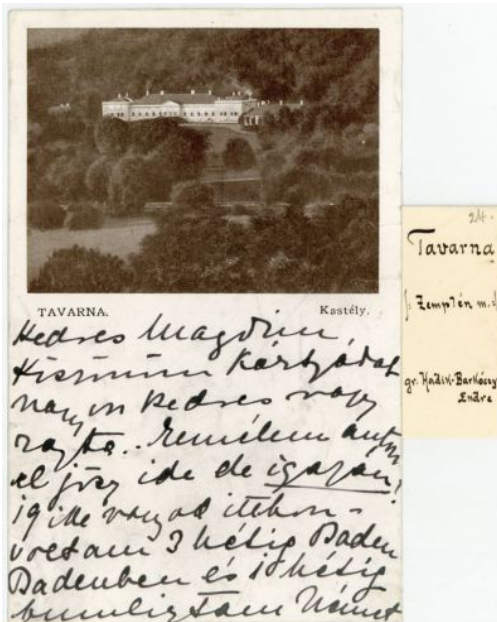 TAVARNA.
Kastély.
Kedves Magdim,
Kiszinum kártyádat
nagyon kedves vagy
rajta. Remélem
el jösz ide de igazán!
itthon
voltam 3 hétig Baden
Badenben és hétig
Német
24.
Tavarna
Zemplén m.
gr. Hadik-Barkóczy
Endre